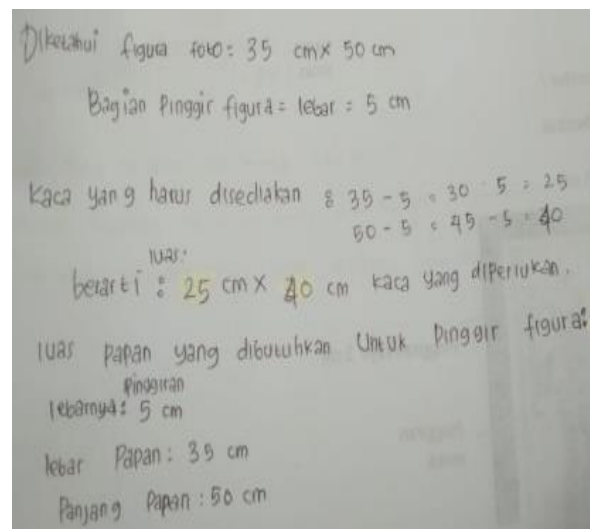 Diketahui figura foto: 35 cm x 50 cm
Bagian Pinggir figura = lebar = 5 cm
Kaca yang harus disediakan : 35 - 5 = 30 - 5 = 25
50 - 5 = 45 - 5 = 40
luas:
berarti : 25 cm x 40 cm kaca yang diperlukan.
luas papan yang dibutuhkan Untuk Pinggir figura:
Pinggiran
lebarnya: 5 cm
lebar Papan: 35 cm
Panjang Papan : 50 cm